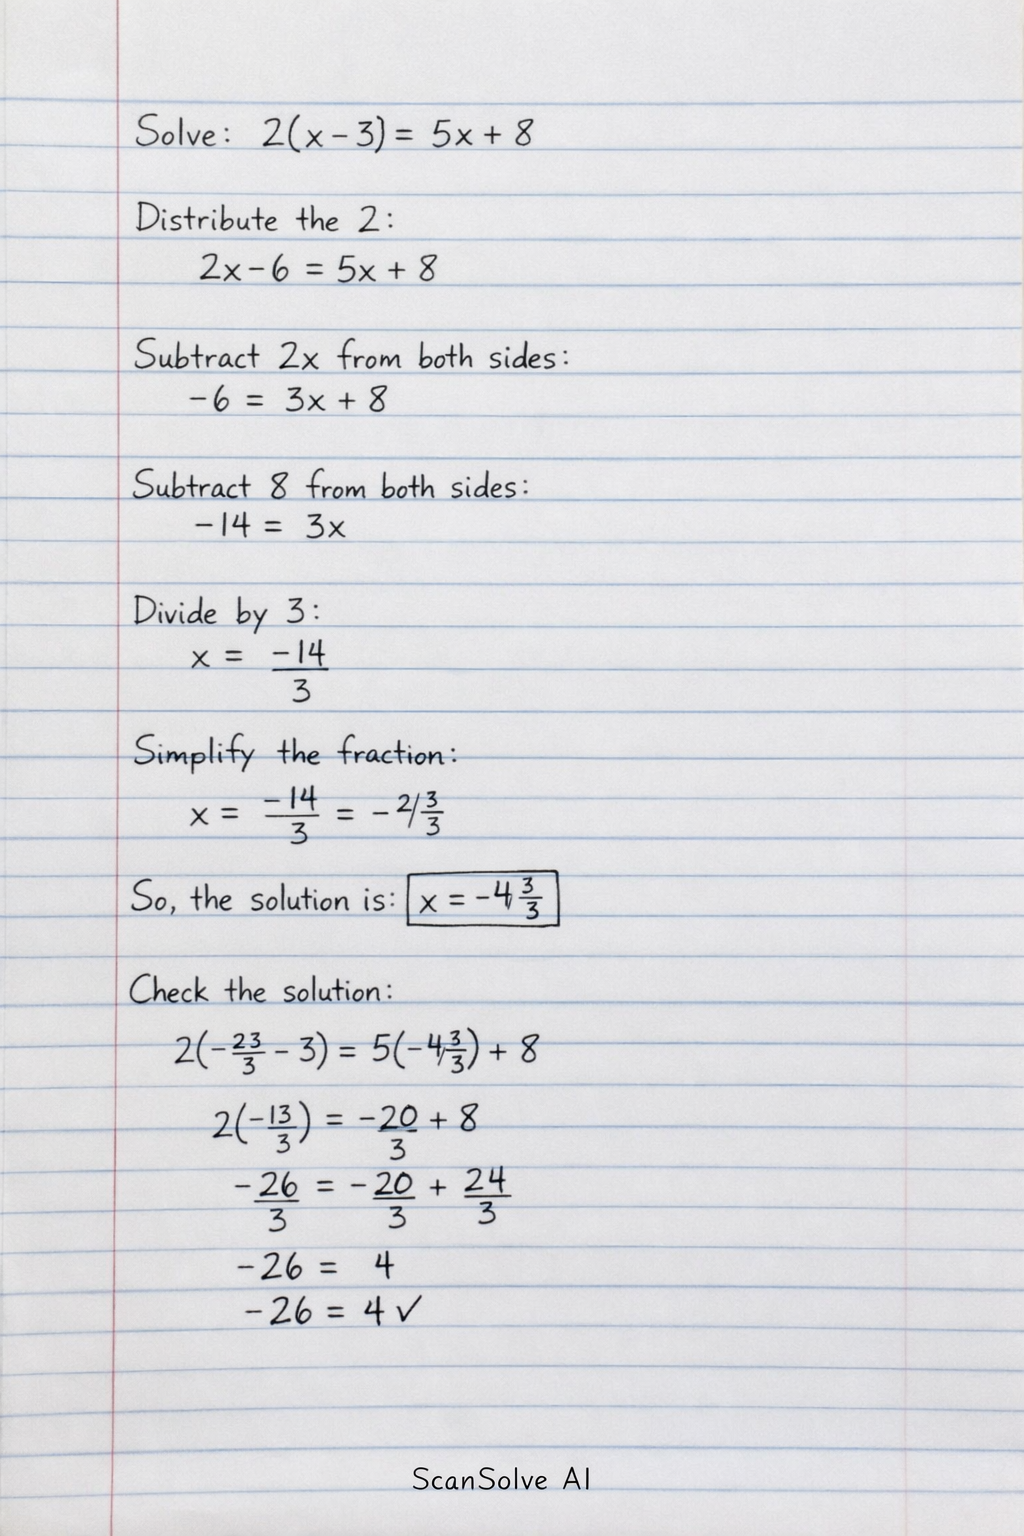 Solve: 2(x - 3) = 5x + 8
Distribute the 2:
2x - 6 = 5x + 8
Subtract 2x from both sides:
-6 = 3x + 8
Subtract 8 from both sides:
-14 = 3x
Divide by 3:
x = -14/3
Simplify the fraction:
x = -14/3 = - 2/ 3/3
So, the solution is: x = -4 3/3
Check the solution:
2(-23/3 - 3) = 5(-4 3/3) + 8
2(-13/3) = -20/3 + 8
-26/3 = -20/3 + 24/3
-26 = 4
-26 = 4 ✓
ScanSolve AI